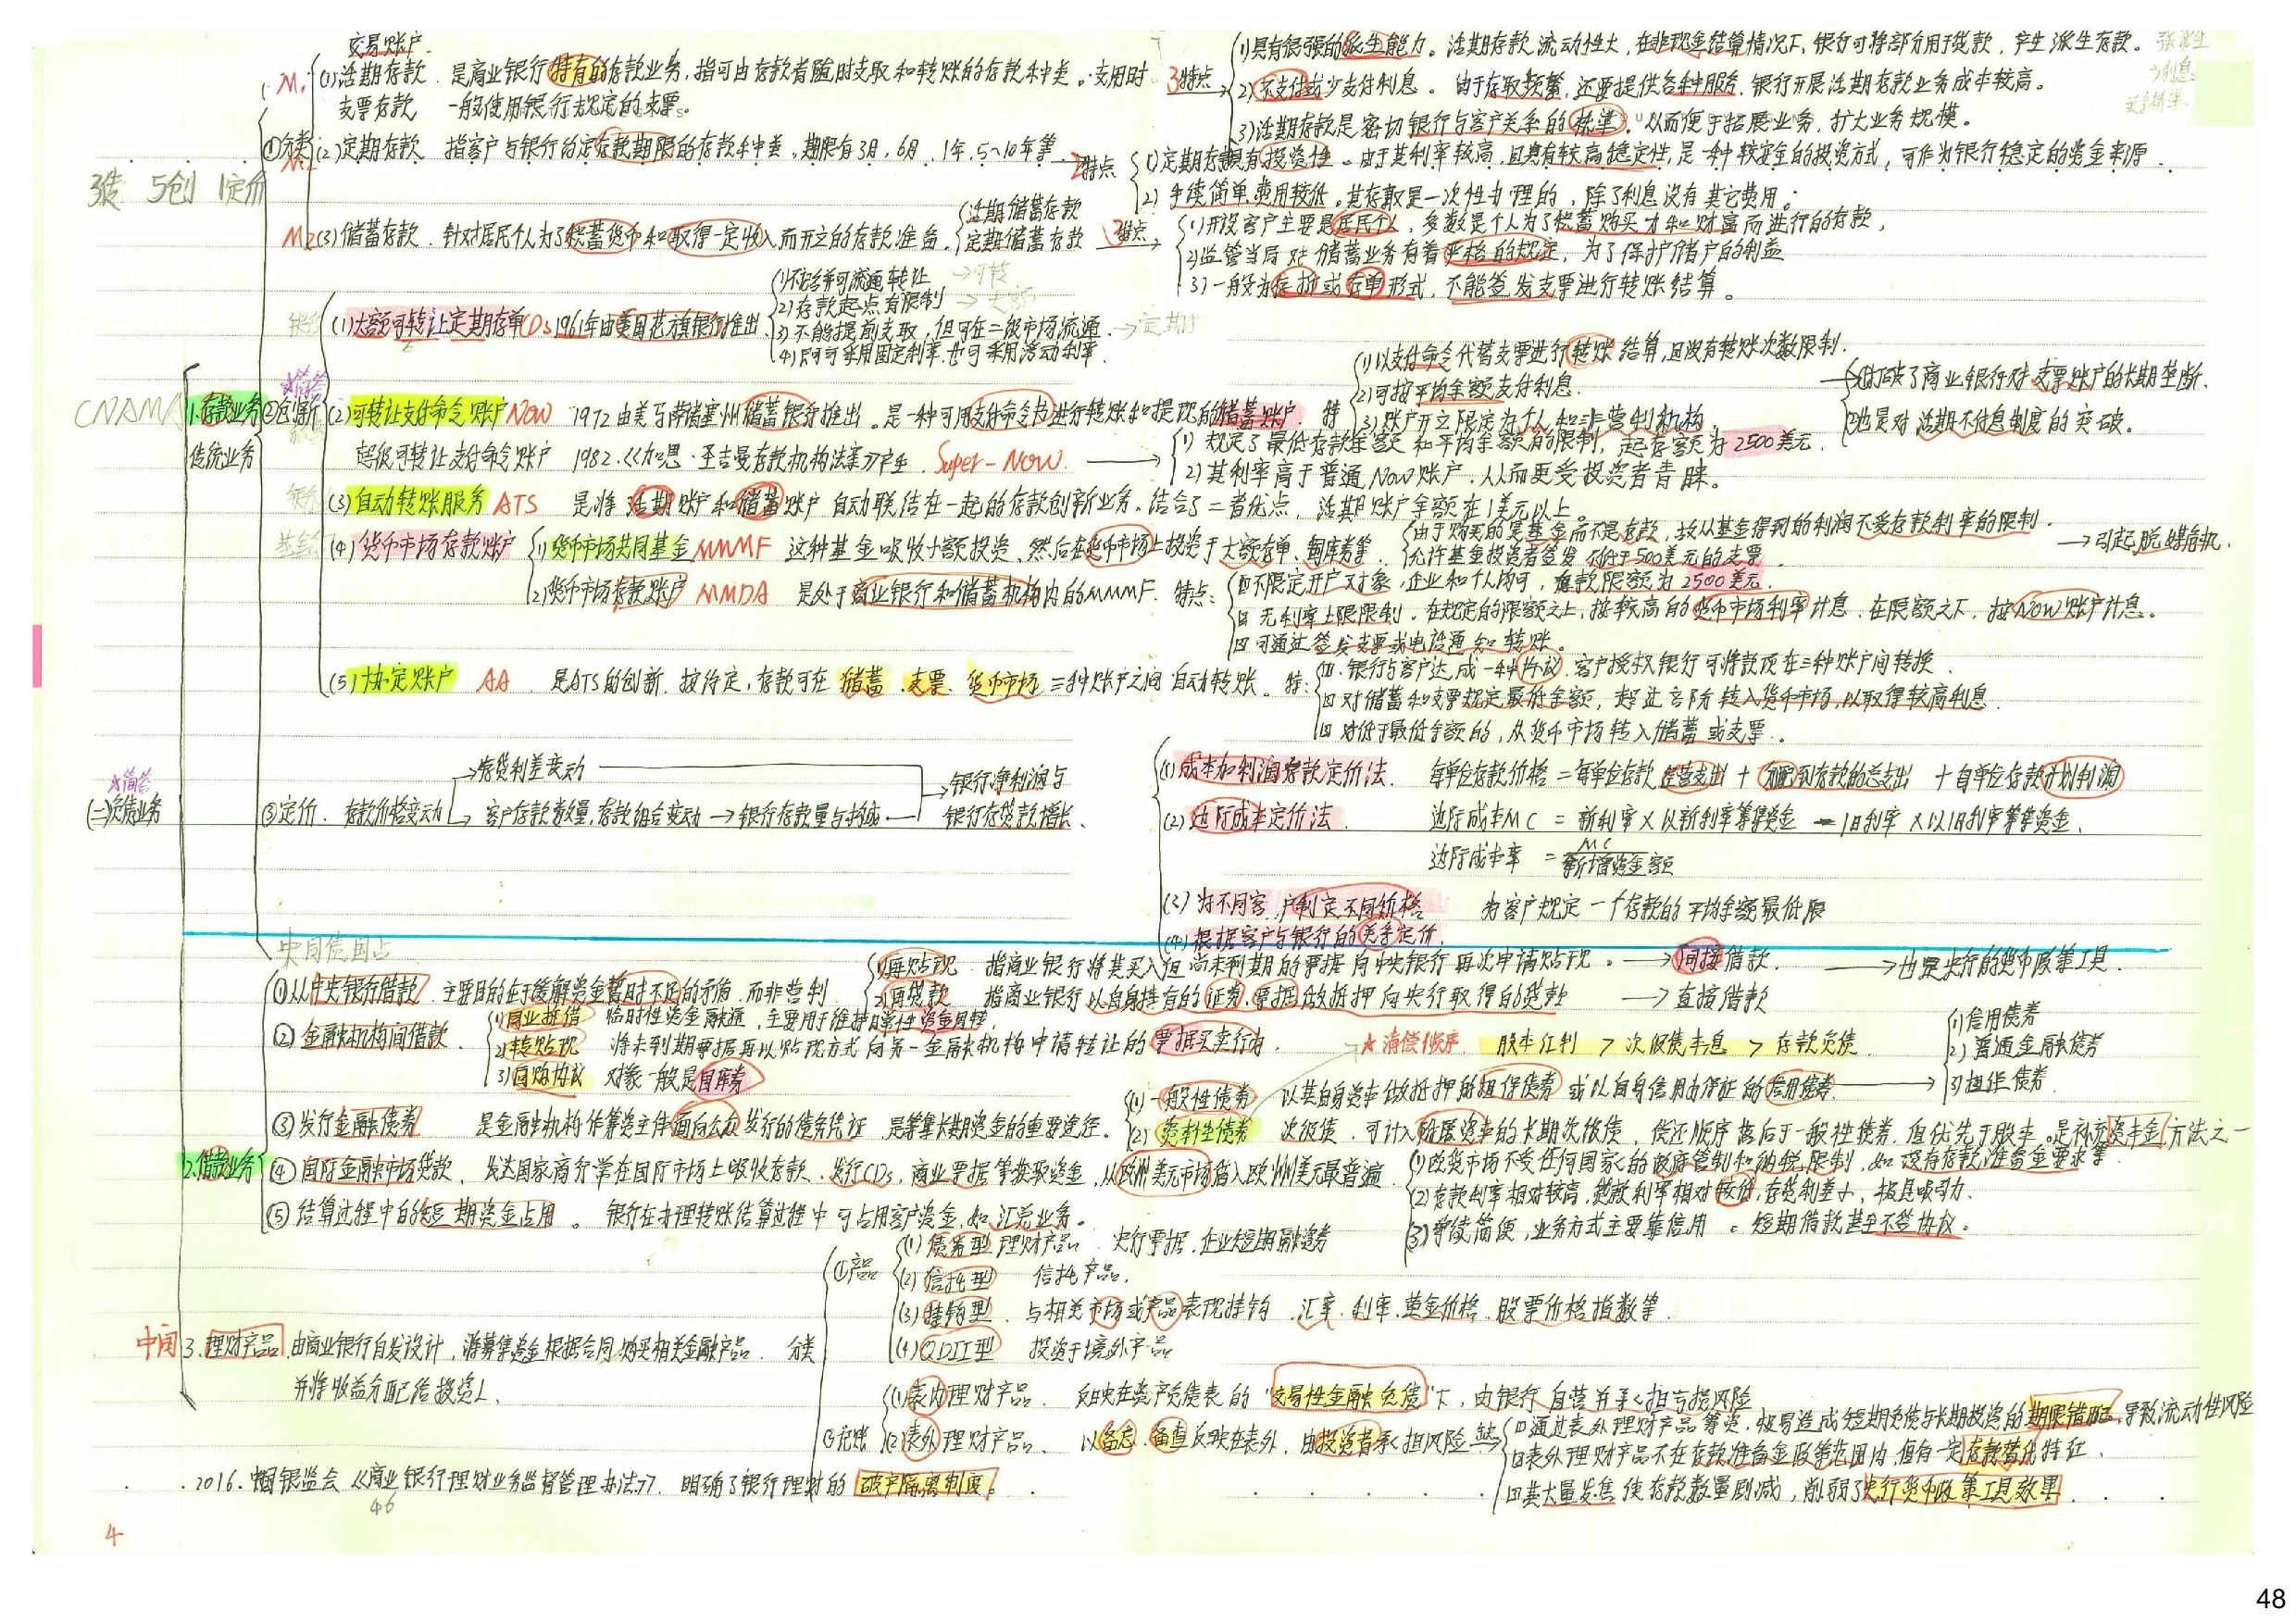 交易账户
M₁ (1)活期存款 是商业银行特有的存款业务,指可由存款者随时支取和转账的存款种类。支用时
支票存款 一般使用银行规定的支票。
3特点
(1)具有很强的派生能力。活期存款流动性大,在非现金结算情况下,银行可将部分用于贷款,产生派生存款。
(2)不支付或少支付利息。由于存取频繁,还要提供各种服务,银行开展活期存款业务成本较高。
(3)活期存款是密切银行与客户关系的桥梁。从而便于拓展业务,扩大业务规模。
①分类
3类 5创 1定价
(2)定期存款 指客户与银行约定存款期限的存款种类,期限有3月,6月,1年,5~10年等
2特点
(1)定期存款具有投资性。由于其利率较高,且具有较高稳定性,是一种较安全的投资方式,可作为银行稳定的资金来源.
(2)手续简单,费用较低。其存取是一次性办理的,除了利息没有其它费用。
M₂ (3)储蓄存款.针对居民个人为了积蓄货币和取得一定收入而开立的存款准备.
活期储蓄存款
定期储蓄存款
3特点
(1)开设客户主要是居民个人,多数是个人为了积蓄购买力和财富而进行的存款,
(2)监管当局对储蓄业务有着严格的规定,为了保护储户的利益
(3)一般为存折或存单形式,不能签发支票进行转账结算。
CNAMA
1.存款业务
传统业务
★简答
②创新
(1)大额可转让定期存单CDs 1961年由美国花旗银行推出
(1)不记名并可流通转让 →可转
(2)存款起点有限制 →大额
(3)不能提前支取,但可在二级市场流通. →定期
(4)即可采用固定利率,也可采用浮动利率.
(2)可转让支付命令账户NOW 1972由美马萨诸塞州储蓄银行推出。是一种可用支付命令书进行转账和提现的储蓄账户. 特
(1)以支付命令代替支票进行转账结算,且没有转账次数限制.
(2)可按平均余额支付利息.
(3)账户开立限定为个人和非营利机构
打破了商业银行对支票账户的长期垄断.
也是对活期不付息制度的突破。
超级可转让支付命令账户 1982.《加恩·圣吉曼存款机构法案》产生. Super-NOW.
(1)规定了最低存款余额和平均余额的限制,起存额为2500美元.
(2)其利率高于普通NOW账户,从而更受投资者青睐。
(3)自动转账服务 ATS 是将活期账户和储蓄账户自动联结在一起的存款创新业务.结合了二者优点,活期账户余额在1美元以上。
(4)货币市场存款账户
(1)货币市场共同基金MMMF 这种基金吸收小额投资,然后在货币市场上投资于大额存单、国库券等.
由于购买的是基金而不是存款,故从基金得到的利润不受存款利率的限制.
允许基金投资者签发不低于500美元的支票
→引起脱媒危机.
(2)货币市场存款账户 MMDA 是处于商业银行和储蓄机构内的MMMF. 特点:
不限定开户对象,企业和个人均可,起款限额为2500美元.
无利率上限限制.在规定的限额之上,按较高的货币市场利率计息.在限额之下,按NOW账户计息。
可通过签发支票或电话通知转账。
(5)协定账户 AA. 是ATS的创新.按约定,存款可在 储蓄.支票.货币市场 三种账户之间自动转账。特:
银行与客户达成一种协议.客户授权银行可将款项在三种账户间转换.
对储蓄和支票规定最低余额,超过部分转入货币市场,以取得较高利息.
对低于最低余额的,从货币市场转入储蓄或支票.
★简答
(二)负债业务
③定价. 存款价格变动
→存贷利差变动
→客户存款数量,存款组合变动→银行存款量与构成
→银行净利润与
银行存贷款增长.
(1)成本加利润存款定价法. 每单位存款价格=每单位存款经营支出+分配到存款的总支出+每单位存款计划利润
(2)边际成本定价法. 边际成本MC=新利率×以新利率筹集资金-旧利率×以旧利率筹集资金.
边际成本率=MC/新增资金额
(3)为不同客户制定不同价格 为客户规定一个存款的平均余额最低限
(4)根据客户与银行的关系定价.
央同债国占
2.借款业务
①从中央银行借款.主要目的在于缓解资金暂时不足的矛盾,而非营利.
(1)再贴现 指商业银行将其买入但尚未到期的票据向中央银行再次申请贴现。→间接借款. →也是央行的货币政策工具.
(2)再贷款 指商业银行以自身持有的证券,票据做抵押向央行取得的贷款 →直接借款
②金融机构间借款.
(1)同业拆借 临时性资金融通,主要用于维持日常性资金周转.
(2)转贴现 将未到期票据再以贴现方式向另一金融机构申请转让的票据买卖行为.
(3)回购协议 对象一般是国库券
★清偿顺序. 股本红利 > 次级债本息 > 存款负债.
③发行金融债券 是金融机构作筹资主体面向公众发行的债务凭证,是筹集长期资金的重要途径。
(1)一般性债券 以其自身资本做抵押的担保债券 或以自身信用为保证的信用债券→
(1)信用债券
(2)普通金融债券
(3)担保债券.
(2)资本性债券 次级债.可计入附属资本的长期次级债,偿还顺序落后于一般性债券,但优先于股本。是补充资本金方法之一
④国际金融市场贷款. 发达国家商行常在国际市场上吸收存款.发行CDs,商业票据等获取资金,从欧洲美元市场借入欧洲美元最普遍.
(1)改货市场不受任何国家的政府管制和纳税限制,如没有存款准备金要求等.
(2)存款利率相对较高,贷款利率相对较低,存贷利差小,极具吸引力.
(3)手续简便,业务方式主要靠信用。短期借款甚至不签协议。
⑤结算过程中的短期资金占用。银行在办理转账结算过程中可占用客户资金,如汇兑业务。
中间 3.理财产品.由商业银行自发设计,将募集资金根据合同,购买相关金融产品. 分类
并将收益分配给投资人.
①产品
(1)债券型理财产品. 央行票据.企业短期融资券
(2)信托型 信托产品.
(3)挂钩型. 与相关市场或产品表现挂钩.汇率.利率.黄金价格.股票价格指数等.
(4)QDII型 投资于境外产品
②记账
(1)表内理财产品. 反映在资产负债表的"交易性金融负债"下,由银行自营并承担亏损风险
(2)表外理财产品、以备忘.备查反映在表外.由投资者承担风险
通过表外理财产品筹资,极易造成短期负债与长期投资的期限错配,导致流动性风险
表外理财产品不在存款准备金政策范围内,但有一定存款替代特征.
其大量发售使存款数量剧减,削弱了央行货币政策工具效果.
.2016.中国银监会《商业银行理财业务监督管理办法》.明确了银行理财的 破产隔离制度。
46
4
48